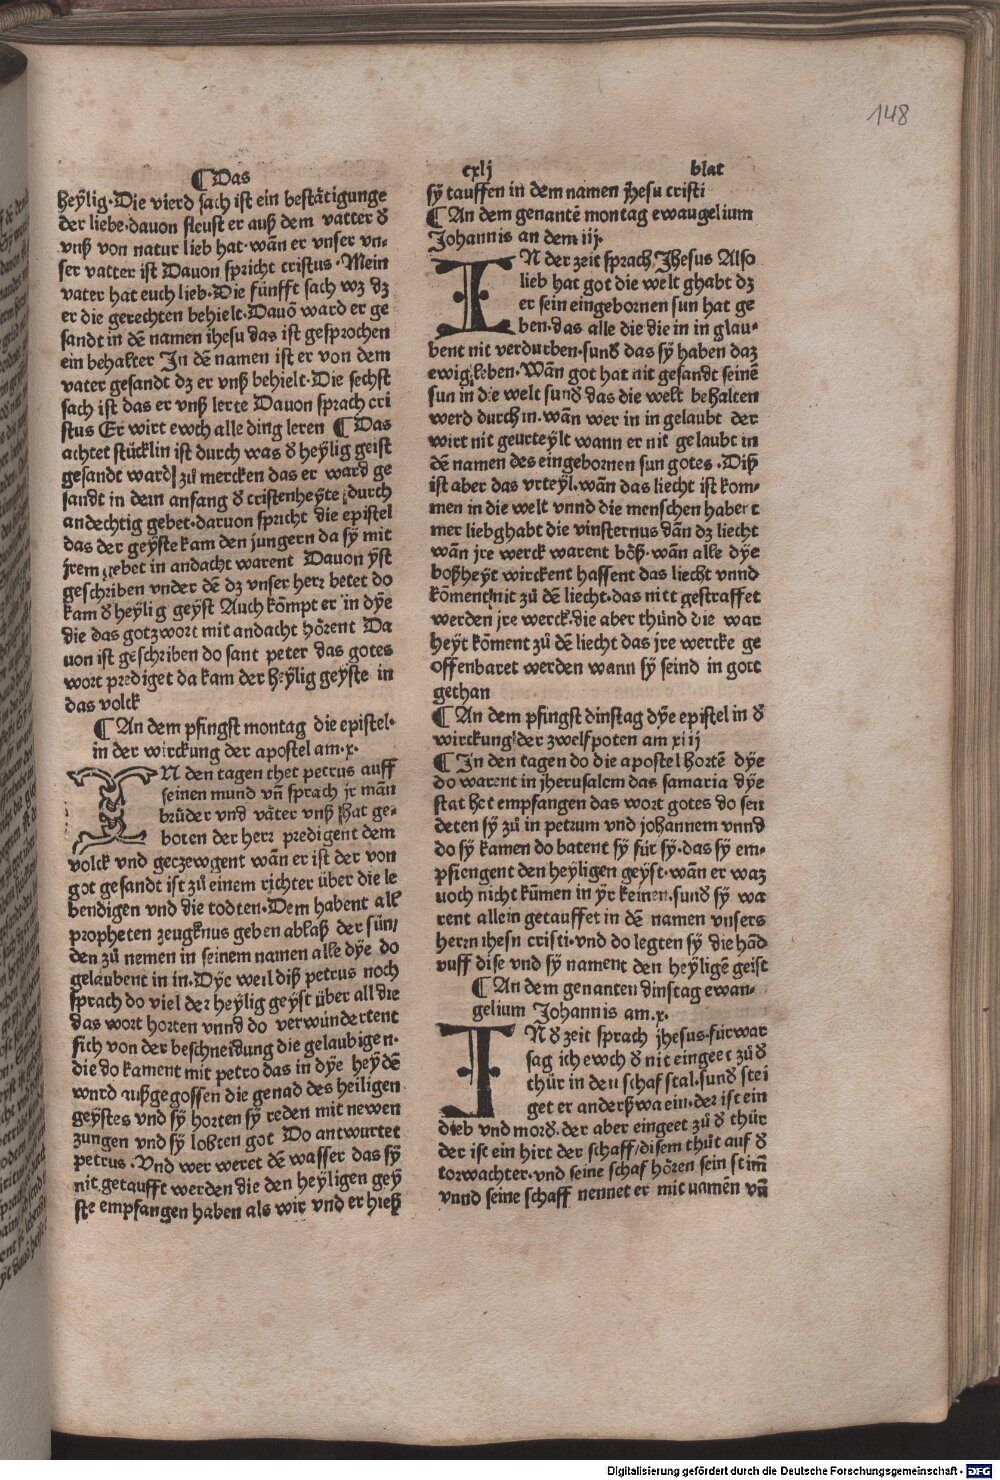 148
¶ Das cxlj blat
heẏlig·Die vierd sach ist ein bestätigunge
der liebe·dauon fleust er auß dem vatter δ
vnß von natur lieb hat·wān er vnser vn-
ser vatter ist Dauon spricht cristus·Mein
vater hat euch lieb·Die fünfft sach wz dz
er die gerechten behielt·Dauō ward er ge
sandt in dē namen ihesu das ist gesprochen
ein behalter In dē namen ist er von dem
vater gesandt dz er vnß behielt·Die sechst
sach ist das er vnß lerte Dauon sprach cri
stus Er wirt ewch alle ding leren ¶ Das
achtet stücklin ist durch was δ heẏlig geist
gesandt ward zů mercken das er ward ge
sandt in dem anfang δ cristenheẏte durch
andechtig gebet·daruon spricht die epistel
das der geẏste kam den jungern da sẏ mit
jrem gebet in andacht warent Dauon ẏst
geschriben vnder dē dz vnser herr betet do
kam δ heẏlig geẏst Auch kōmpt er in dẏe
die das gotzwort mit andacht hörent Da
uon ist geschriben do sant peter das gotes
wort prediget da kam der heẏlig geẏste in
das volck
¶ An dem pfingst montag die epistel·
in der wirckung der apostel am·x·
IN den tagen thet petrus auff
seinen mund vn̄ sprach jr mān
brüder vnd väter vnß hat ge-
boten der herr predigent dem
volck vnd geczewgent wān er ist der von
got gesandt ist zů einem richter über die le
bendigen vnd die todten·Dem habent all
propheten zeugknus geben ablaß der sün/
den zů nemen in seinem namen alle dẏe do
gelaubent in in·Dẏe weil diß petrus noch
sprach do viel der heẏlig geẏst über all die
das wort horten vnnd do verwundertent
sich von der beschneidung die gelaubigen·
die do kament mit petro das in dẏe heẏdē
ward außgegossen die genad des heiligen
geẏstes vnd sẏ horten sẏ reden mit newen
zungen vnd sẏ lobten got Do antwurtet
petrus·Vnd wer weret dē wasser das sẏ
nit getaufft werden die den heẏligen geẏ
ste empfangen haben als wir vnd er hieß
sẏ tauffen in dem namen jhesu cristi
¶ An dem genantē montag ewaugelium
Johannis an dem iij·
IN der zeit sprach Jhesus Also
lieb hat got die welt ghabt dz
er sein eingebornen sun hat ge
ben·das alle die die in in glau-
bent nit verdurben·sunδ das sẏ haben daz
ewig leben·Wān got hat nit gesandt seinē
sun in die welt sunδ das die welt behalten
werd durch in·wān wer in in gelaubt der
wirt nit geurteẏlt wann er nit gelaubt in
dē namen des eingebornen sun gotes·Diß
ist aber das vrteẏl·wān das liecht ist kom-
men in die welt vnnd die menschen habent
mer liebghabt die vinsternus dān dz liecht
wān jre werck warent bōß·wān alle dẏe
boßheẏt wirckent hassent das liecht vnnd
kōment nit zů dē liecht·das nitt gestraffet
werden jre werck·die aber thůnd die war
heẏt kōment zů dē liecht das jre wercke ge
offenbaret werden wann sẏ seind in gott
gethan
¶ An dem pfingst dinstag dẏe epistel in δ
wirckung der zwelf poten am xiij
¶ In den tagen do die apostel hortē dẏe
do warent in jherusalem das samaria dẏe
stat het empfangen das wort gotes do sen
deten sẏ zů in petrum vnd johannem vnnd
do sẏ kamen do batent sẏ für sẏ·das sẏ em-
pfiengent den heẏligen geẏst·wān er waz
noch nicht kūmen in ẏr keinen·sunδ sẏ wa
rent allein getauffet in dē namen vnsers
herrn ihesu cristi·vnd do legten sẏ die hād
vuff dise vnd sẏ nament den heẏligē geist
¶ An dem genanten dinstag ewan-
gelium Johannis am·x·
IN δ zeit sprach jhesus·fürwar
sag ich ewch δ nit eingeet zů δ
thür in den schaf stal·sunδ stei
get er anderßwa ein·der ist ein
dieb vnd morδ·der aber eingeet zů δ thür
der ist ein hirt der schaff/disem thůt auf δ
torwachter·vnd seine schaf hören sein stim̄
vnnd seine schaff nennet er mit namēn vn̄
Digitalisierung gefördert durch die Deutsche Forschungsgemeinschaft - DFG